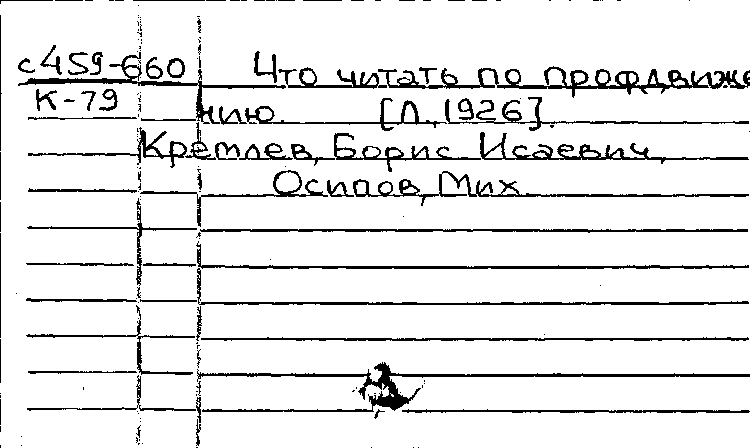 с459-660 Что читать по профдвиже
К-79 нию. [Л., 1926].
Кремлев, Борис Исаевич,
Осипов, Мих.